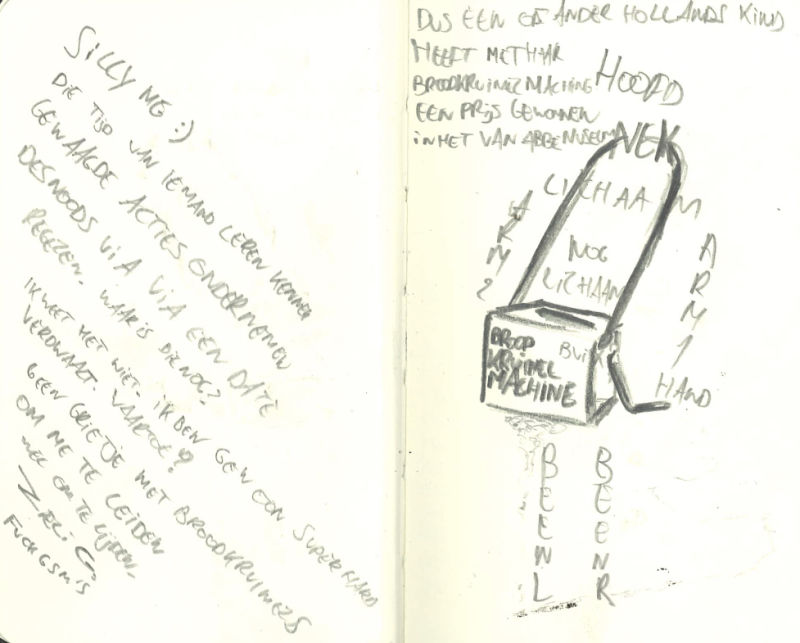 SILLY ME :)
DIE TIJD VAN IEMAND LEREN KENNEN
GEWAAGDE ACTIES ONDERNEMEN
DESNOODS VIA VIA EEN DATE
REGELEN. WAAR IS DIE NOG?
VERDWAALT. WAARTOE?
IK WEET HET NIET. IK BEN GEWOON SUPER HARD
GEEN GRIETJE MET BROODKRUIMELS
OM ME TE LEIDEN
WEL OM TE LIJDEN.
FUCK GSM'S
DUS EEN OF ANDER HOLLANDS KIND
HEEFT MET HAAR
BROODKRUIMELMACHINE
EEN PRIJS GEWONNEN
IN HET VAN ABBEMUSEUM
HOOFD
NEK
LICHAAM
ARM 2
ARM 1
NOG
LICHAAM
BROOD
KRUIMEL
MACHINE
BUIK
HAND
BEEN L
BEEN R